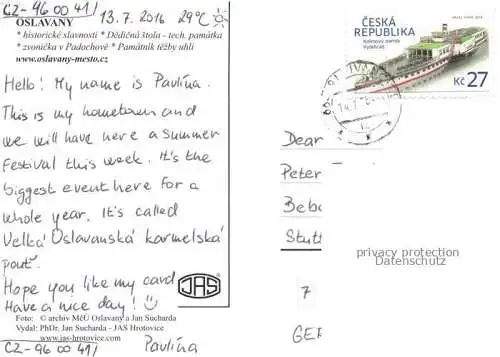 CZ-960041/
13.7.2016 29°C
OSLAVANY
* historické slavnosti * Dědičná štola - tech. památka
* zvonička v Padochově * Památník těžby uhlí
www.oslavany-mesto.cz
Hello! My name is Pavlína.
This is my hometown and
we will have here a summer
Festival this week. It's the
biggest event here for a
whole year. It's called
Velká Oslavanská karmelská
pouť.
Hope you like my card
Have a nice day!
JAS
Foto: © archiv MěÚ Oslavany a Jan Sucharda
Vydal: PhDr. Jan Sucharda - JAS Hrotovice
www.jas-hrotovice.com
CZ-960041/
Pavlína
ČESKÁ
REPUBLIKA
Kolesový parník
Vyšehrad
Kč 27
Dear
Peter
Beb
Stutt
privacy protection
Datenschutz
7
GER